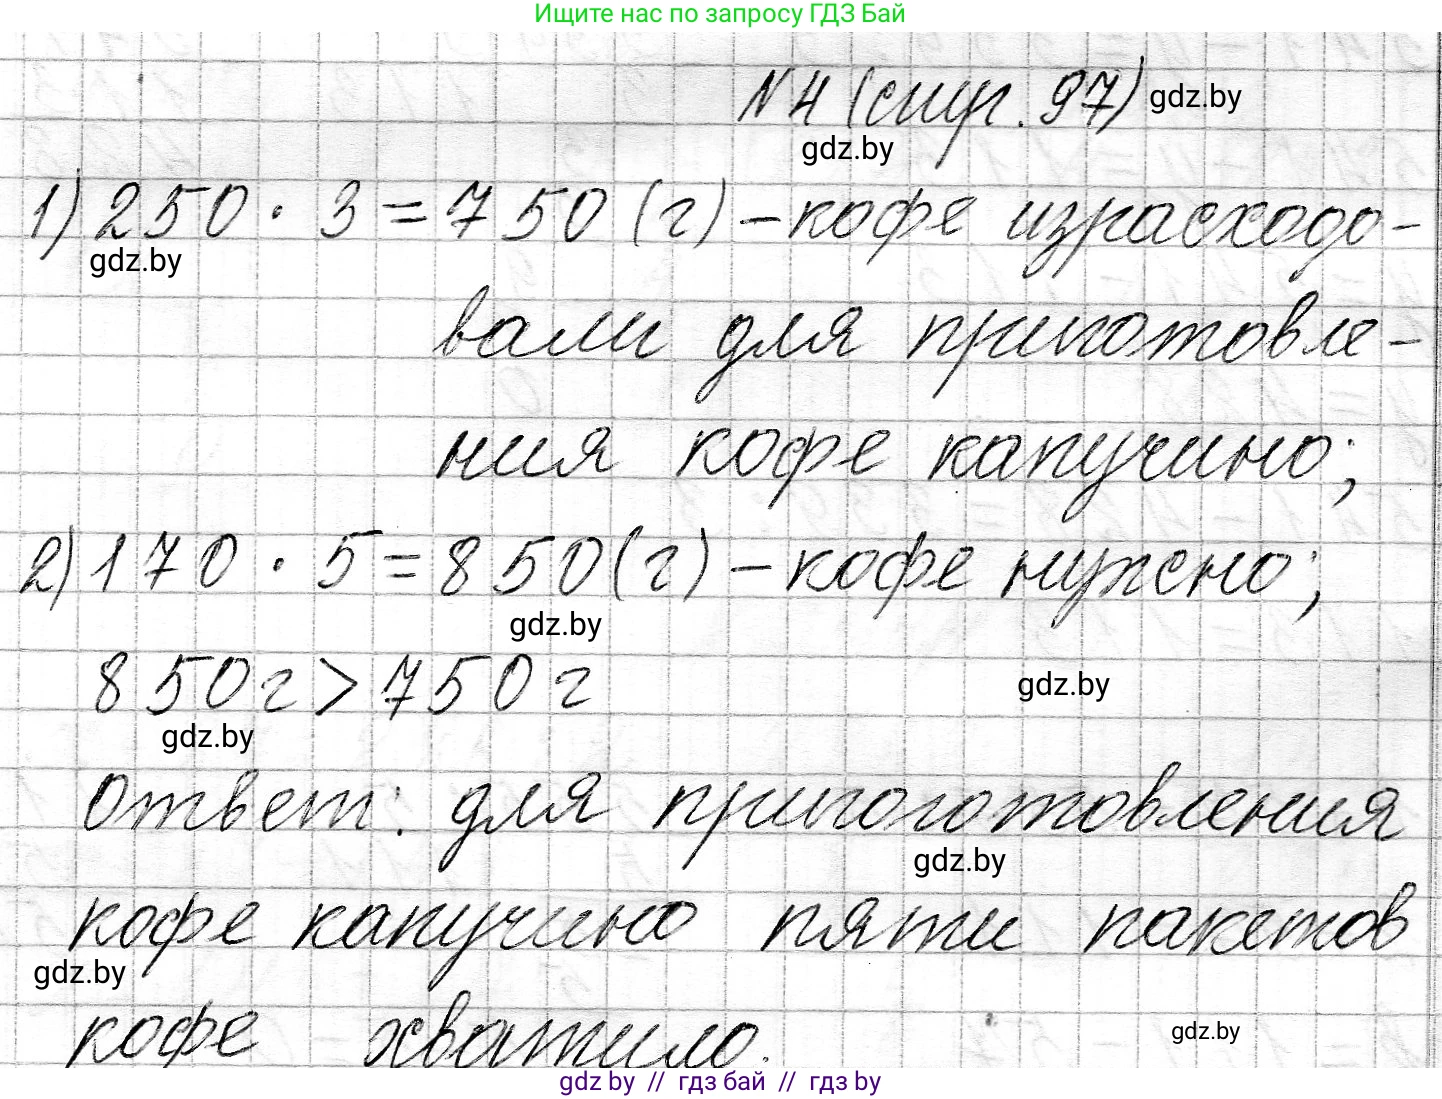 Ищите нас по запросу ГДЗ Бай
N4 (стр. 97) gdz.by
gdz.by
1) 250 · 3 = 750 (г) – кофе израсходо-
gdz.by
вали для приготовле-
ния кофе капучино;
2) 170 · 5 = 850 (г) – кофе нужно;
gdz.by
850 г > 750 г
gdz.by
gdz.by
Ответ: для пригоготовления
gdz.by
кофе капучино пяти пакетов
gdz.by
кофе хватило.
gdz.by
gdz by // гдз бай // гдз by